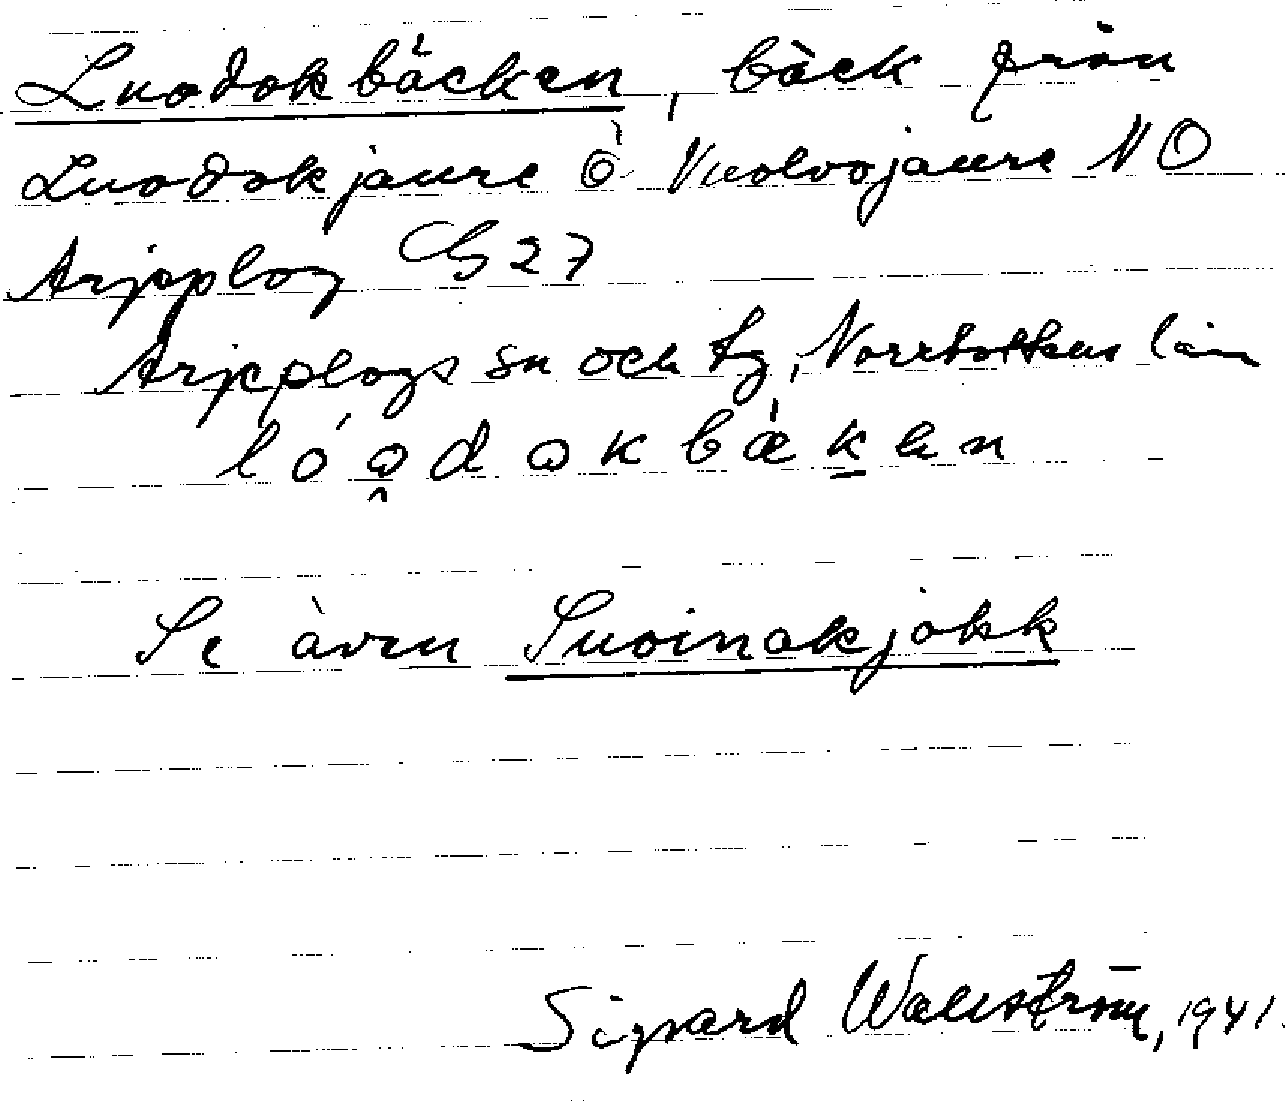 Luodokbäcken, bäck från
Luodokjaure Ö Vuolvojaure NO
Arjeplog G27
Arjeplogs sn och tg, Norrbottens län
lóo̭dokbäḵen
Se även Suoinakjokk
Sigvard Wallström, 1941.